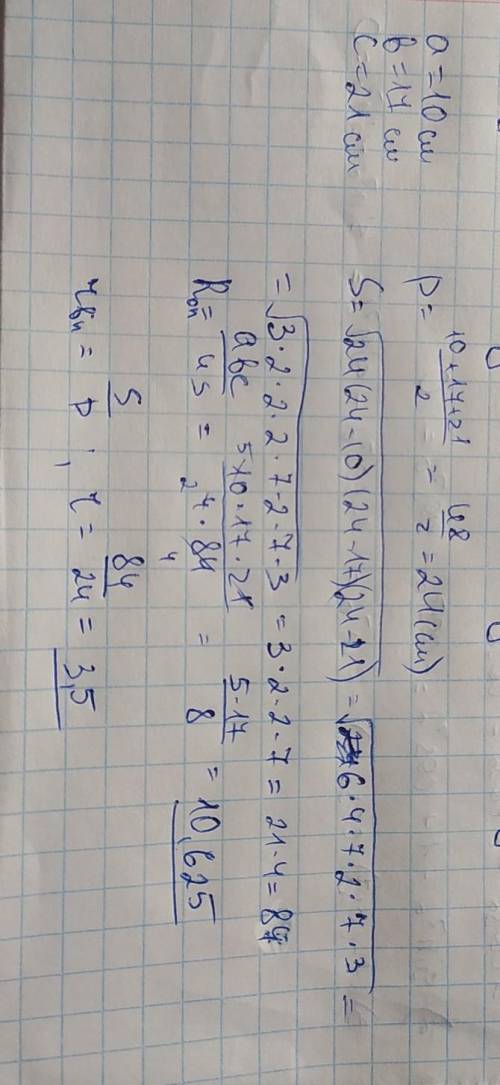 a = 10 см
b = 17 см
c = 21 см
p = \frac{10+17+21}{2} = \frac{48}{2} = 24 (см)
S = \sqrt{24(24-10)(24-17)(24-21)} = \sqrt{6·4·7·2·7·3} =
= \sqrt{3·2·2·2·7·2·7·3} = 3·2·2·7 = 21·4 = 84
R_{оп} = \frac{abc}{4S} = \frac{10·17·21}{4·84} = \frac{5·17}{8} = 10,625
r_{вп} = \frac{S}{p}; r = \frac{84}{24} = 3,5